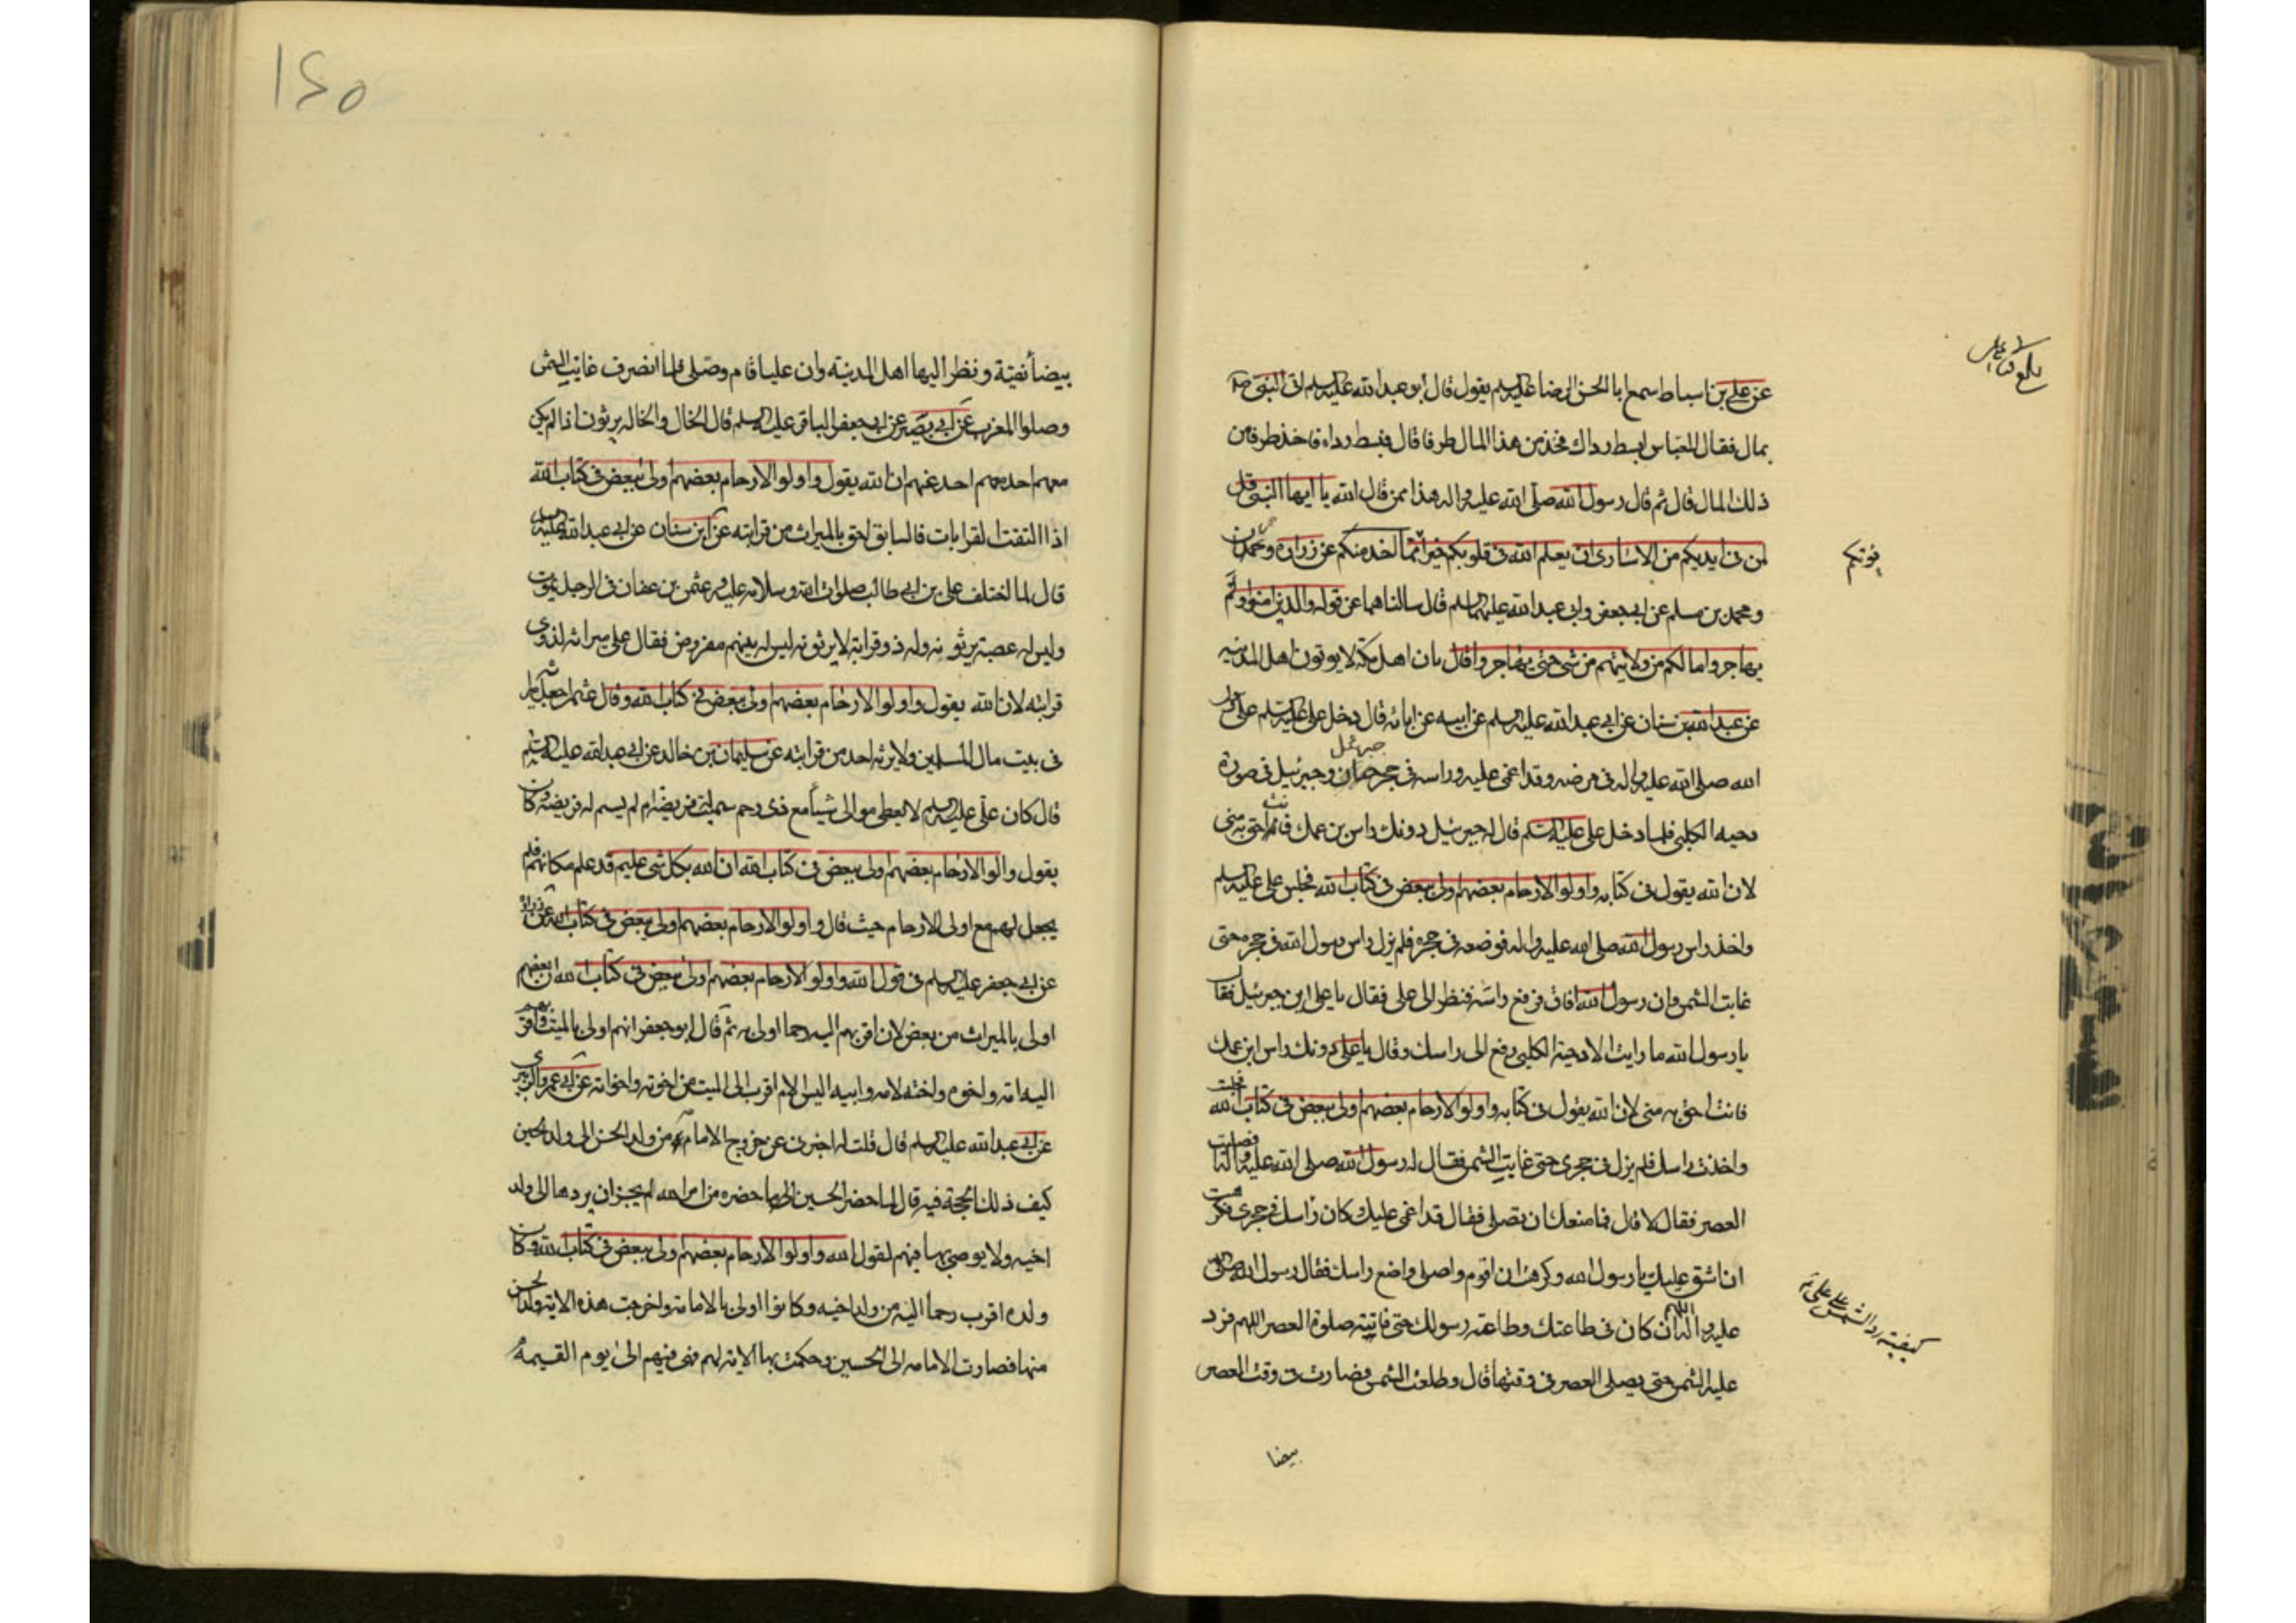 عن علي بن اسباط سمع ابا الحسن الرضا عليه السلم يقول قال ابو عبد الله عليه السلم اتى النبي صلى
بمال فقال للعباس ابسط رداك فخذ من هذا المال طرفا قال فبسط رداه فاخذ طرفا من
ذلك المال قال ثم قال رسول الله صلى الله عليه واله هذا مما قال الله يا ايها النبي قل
لمن في ايديكم من الاسارى ان يعلم الله في قلوبكم خيرا مما اخذ منكم عن زرارة وحمران
يؤتكم
ومحمد بن مسلم عن ابي جعفر وابي عبد الله عليهما السلم قال سالناهما عن قوله والذين امنوا ولم
يهاجروا ما لكم من ولايتهم من شي حتى يهاجروا قال بان اهل مكة لا يوتون اهل المدينه
عن عبد الله بن سنان عن ابي عبد الله عليه السلم عن ابيه عن ابائه قال دخل علي عليه السلم على رسول
الله صلى الله عليه واله في مرضه وقد اغمي عليه وراسه في حجر جبرئيل وجبرئيل في صورة
دحيه الكلبي فلما دخل علي عليه السلم قال له جبرئيل دونك راس بن عمك فانت احق به مني
لان الله يقول في كتابه واولوا الارحام بعضهم اولى ببعض في كتاب الله فجلس علي عليه السلم
واخذ راس رسول الله صلى الله عليه واله فوضعه في حجره فلم يزل راس رسول الله في حجره حتى
غابت الشمس وان رسول الله افاق فرفع راسه فنظر الى علي فقال يا علي اين جبرئيل فقال
يا رسول الله ما رايت الا دحية الكلبي رفع الى راسك وقال يا علي دونك راس ابن عمك
فانت احق به مني لان الله يقول في كتابه واولوا الارحام بعضهم اولى ببعض في كتاب الله فجلست
واخذت راسك فلم يزل في حجري حتى غابت الشمس فقال له رسول الله صلى الله عليه واله افصليت
العصر فقال لا قال فما منعك ان تصلي فقال قد اغمي عليك وكان راسك في حجري فكرهت
ان اشق عليك يا رسول الله وكرهت ان اقوم واصلي واضع راسك فقال رسول الله صلى الله
عليه واله اللهم ان كان في طاعتك وطاعته رسولك حتى فاتته صلوة العصر اللهم فرد
كيفية رد الشمس على علي
عليه الشمس حتى يصلي العصر في وقتها قال وطلعت الشمس فصارت في وقت العصر
بيضا
١٤٥
بيضا نقية ونظر اليها اهل المدينه وان عليا قام وصلى فلما انصرف غابت الشمس
وصلوا المغرب عن ابي بصير عن ابي جعفر الباقر عليه السلم قال الخال والخاله يرثون اذا لم يكن
معهم احد معهم احد غيرهم ان الله يقول واولوا الارحام بعضهم اولى ببعض في كتاب الله
اذا التقت القرابات فالسابق احق بالميراث من قرابته عن ابن سنان عن ابي عبد الله عليه السلم
قال لما اختلف علي بن ابي طالب صلوات الله وسلامه عليه وعثمن بن عفان في الرجل يموت
وليس له عصبة يرثونه وله ذو قرابة لا يرثونه ليس له بينهم مفروض فقال علي ميراثه لذوي
قرابته لان الله يقول واولوا الارحام بعضهم اولى ببعض في كتاب الله وقال عثمن اجعل ميراثه
في بيت مال المسلمين ولا يرثه احد من قرابته عن سليمان بن خالد عن ابي عبد الله عليه السلم
قال كان علي عليه السلم لا يعطي موالى شيا مع ذي رحم سميت له فريضة ام لم يسم له فريضة وكان
يقول واولوا الارحام بعضهم اولى ببعض في كتاب الله ان الله بكل شي عليم قد علم مكانهم فلم
يجعل لهم مع اولى الارحام حيث قال واولوا الارحام بعضهم اولى ببعض في كتاب الله عن زرارة
عن ابي جعفر عليه السلم في قول الله واولوا الارحام بعضهم اولى ببعض في كتاب الله ان بعضهم
اولى بالميراث من بعض لان اقربهم اليه رحما اولى به ثم قال ابو جعفر انهم اولى بالميت واقربهم
اليه امه واخوه واخته لامه وابيه اليس الام اقرب الى الميت من اخوته واخواته عن ابي عمرو الزبيري
عن ابي عبد الله عليه السلم قال قلت له اخبرني عن خروج الامامة من ولد الحسن الى ولد الحسين
كيف ذلك وما الحجة فيه قال لما حضر الحسين ما حضره من امر الله لم يجز ان يردها الى ولد
اخيه ولا يوصي بها فيهم لقول الله واولوا الارحام بعضهم اولى ببعض في كتاب الله وكان
ولده اقرب رحما اليه من ولد اخيه وكانوا اولى بالامامة واخرجت هذه الاية ولد الحسن
منها فصارت الامامه الى الحسين وحكمت بها الاية لهم فهي فيهم الى يوم القيمة